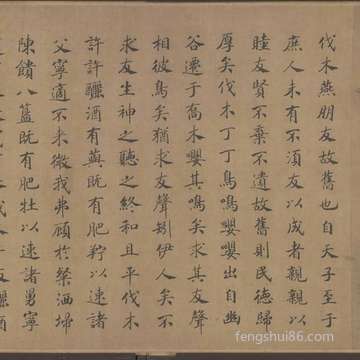 伐木燕朋友故舊也自天子至于
庶人未有不須友以成者親親以
睦友賢不棄不遺故舊則民德歸
厚矣伐木丁丁鳥鳴嚶嚶出自幽
谷遷于喬木嚶其鳴矣求其友聲
相彼鳥矣猶求友聲矧伊人矣不
求友生神之聽之終和且平伐木
許許釃酒有藇既有肥羜以速諸
父寧適不來微我弗顧於粲洒埽
陳饋八簋既有肥牡以速諸舅寧
fengshui86.com